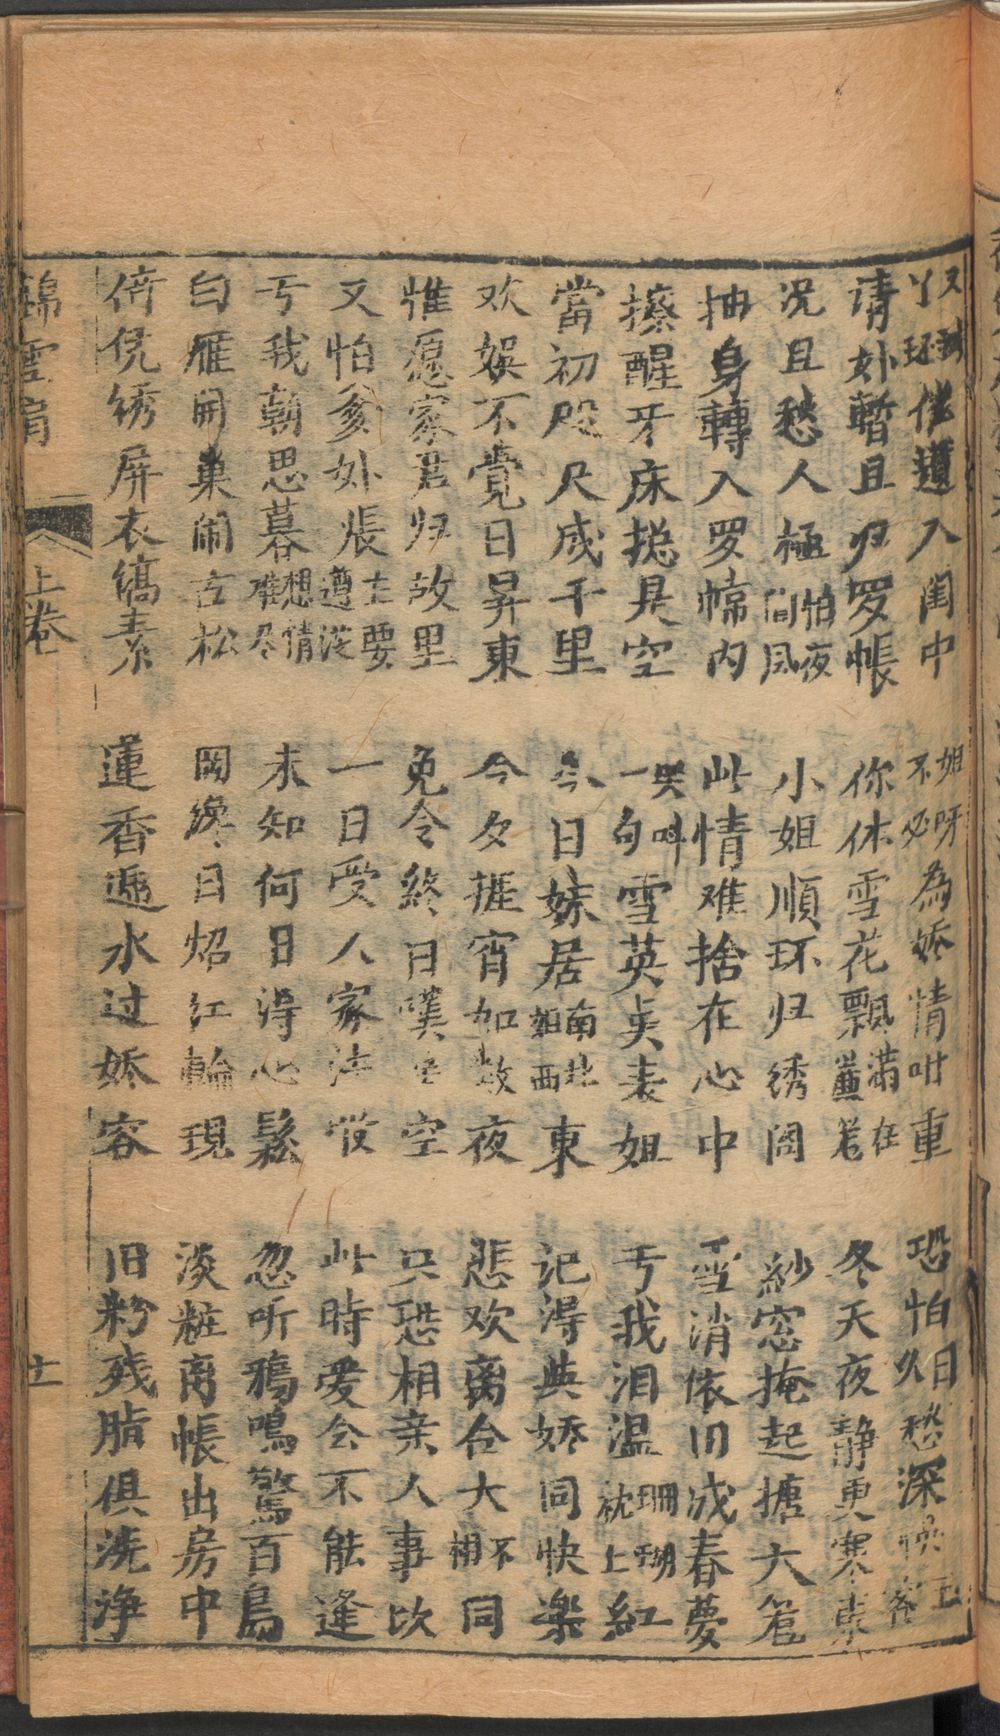 又到丫环催遵入闺中 姐呀不必為娇情咁重 恐怕日久愁深悞玉容
请外暫且归罗帳 你休雪花飘满在薰笼 冬天夜静更寒凍
况且愁人極怕夜間风 小姐順环归绣阁 紗窓掩起搪大笼
抽身轉入罗幃内 此情难捨在心中 雪消依旧成春夢
搽醒牙床揔是空 哭叫一句雪英吴表姐 亏我泪温珊瑚枕上紅
當初咫尺成千里 今日妹居南北姐西東 记得與娇同快楽
欢娱不覺日昇東 今夕捱宵如数夜 悲欢离合大不相同
惟愿家君归故里 免令終日嘆空 只恐相亲人事坎
又怕爹外張主要遵從 一日受人家 此時爱会不能逢
亏我朝思暮想情难尽 未知何日得心鬆 忽听鴉鳴驚百鳥
白雁開巢闹古松 日炤红輪現 淡粧离帳出房中
倚俛绣屏衣縞素 蓮香逓水过娇容 旧粉残脂俱洗净
錦雲肩 上卷 十一